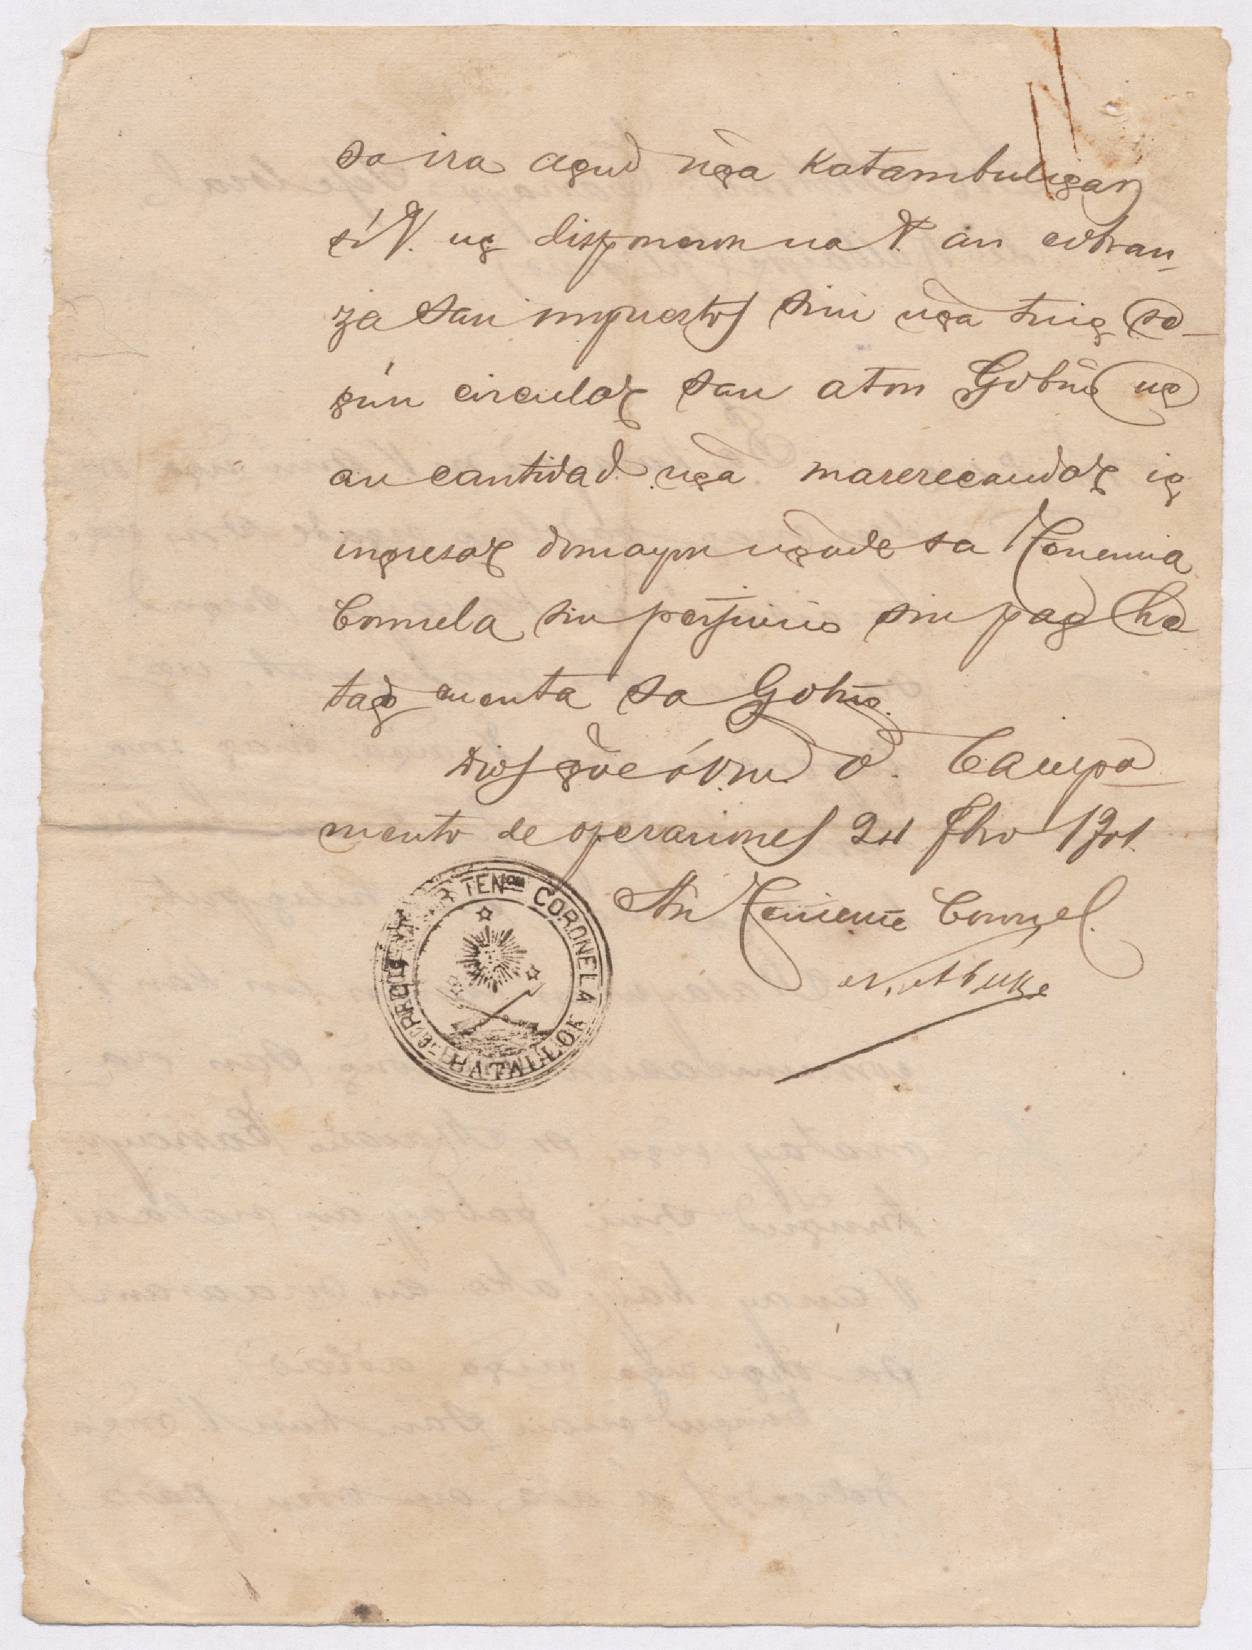 sa ira agud ñga katambuligan
si V. ug disponeron na V. an cobran-
za san impuestos sini ñga tuig se-
gún circular san aton Gobno ug
an cantidad ñga marerecaudar ig
ingresar domayon ñgade sa Tenencia
Coronela sin perjuicio sin pag ha-
tag cuenta sa Gobno.
Dios gũe á V. m. a. Campa-
mento de operaciones 24 Fbro 1901.
An Teniente Coronel.
TEN. CORONELA
BATALLON